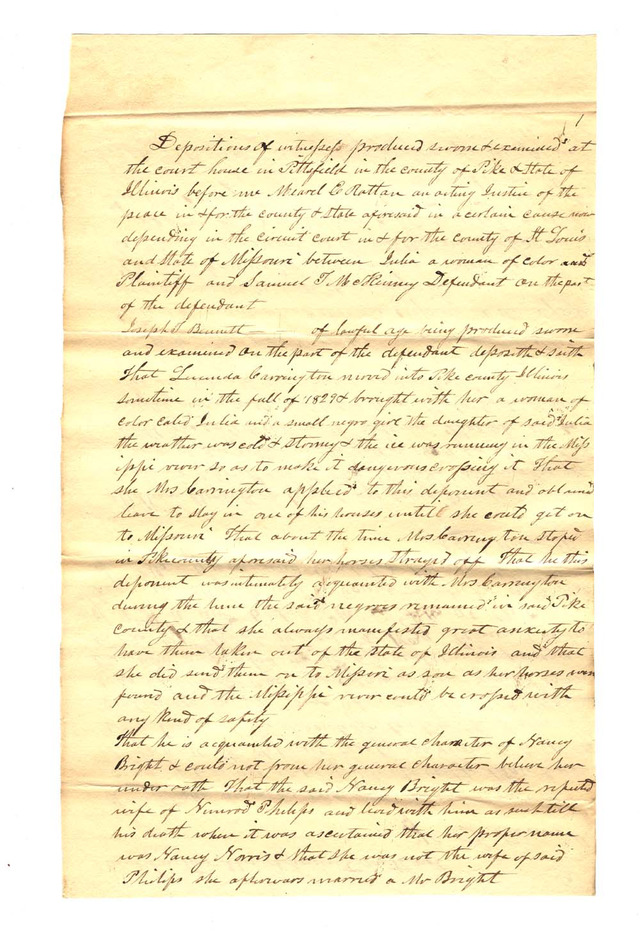 1
Depositions of witnesses produced sworn & examined at
the court house in Pittsfield in the county of Pike & State of
Illinois before me an acting Justice of the
peace in & for the county & state aforesaid in a certain cause now
depending in the circuit court in & for the county of St Louis
and State of Missouri between Julia a woman of color
Plaintiff and Samuel T. McKinney Defendant on the part
of the defendant
Joseph Burnett of lawful age being produced sworn
and examined on the part of the defendant deposith & seith
That Lucinda Carrington moved into Pike county Illinois
sometime in the fall of 1829 & brought with her a woman of
color caled Julia and a small negro girl the daughter of said Julia
the weather was cold & stormy & the ice was running in the Miss
ippi river so as to make it dangerous crossing it That
she Mrs Carrington applied to this deponent and obtained
leave to stay in one of his houses untill she could get on
to Missouri That about the time Mrs Carrington stoped
in Pike county aforesaid her horses strayed off That he this
deponent was intimatly acquanted with Mrs Carrington
during the time the said negroes remained in said Pike
county & that she always manifested great anxiety to
have them taken out of the state of Illinois and that
she did send them on to Missori as soon as her horses were
found and the Missippi river could be crossed with
any kind of safety
That he is acquanted with the general character of Nancy
Bright & could not from her general character believe her
under oath That the said Nancy Bright was the reputed
wife of Nimrod Philips and lived with him as such till
his death when it was ascertained that her proper name
was Nancy Norris & that she was not the wife of said
Philips she afterwards married a Mr Bright